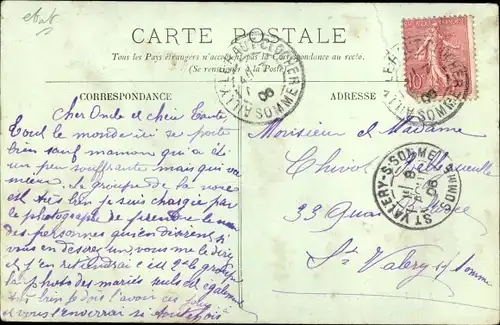 CARTE POSTALE
Tous les Pays étrangers n'acceptent pas la Correspondance au recto.
(Se renseigner à la Poste)
CORRESPONDANCE
ADRESSE
AILLY-LE-HAUT-CLOCHER SOMME
06
AILLY-LE-HAUT-CLOCHER SOMME
06
10
ST VALERY-S-SOMME SOMME
06
Cher Oncle et chère Tante
Tout le monde ici se porte
bien sauf maman qui a été
un peu souffrante mais qui va
mieux. Le groupe de la noce
est très bien je suis chargée par
le photographe de prendre le nom
des personnes qui en désirent, si
vous en désirez un, vous me le direz
et j'en retiendrai c'est le groupe
la photos des mariés seuls est également
bien je dois l'avoir ces jours
et vous l'enverrai si toutefois
Monsieur et Madame
Chivot
33 Quai
St Valery s/ Somme